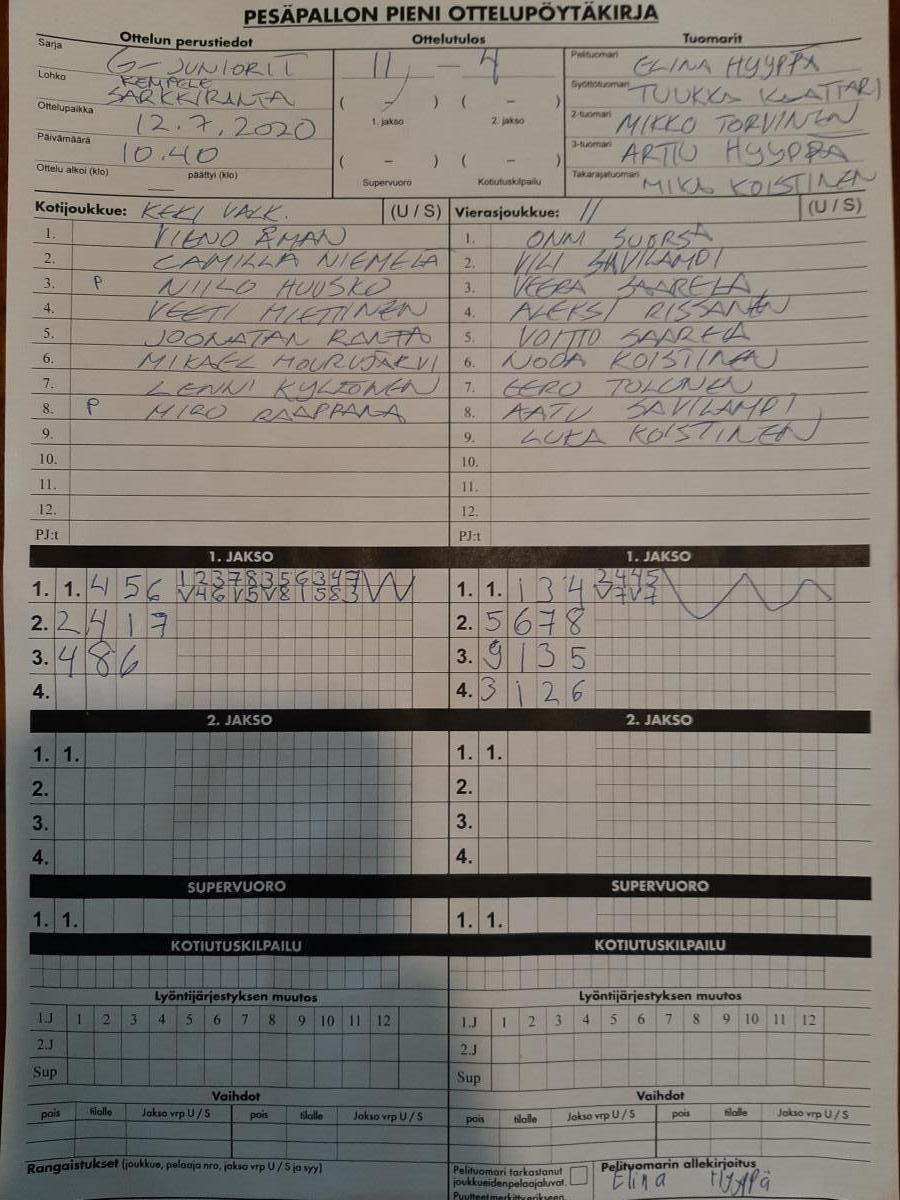 PESÄPALLON PIENI OTTELUPÖYTÄKIRJA
Ottelun perustiedot
Sarja G-JUNIORIT
Lohko KEMPELE
Ottelupaikka SARKKIRANTA
Päivämäärä 12.7.2020
Ottelu alkoi (klo) 10.40 päättyi (klo)
Ottelutulos
11 - 4
( - ) ( - )
1. jakso 2. jakso
( - ) ( - )
Supervuoro Kotiutuskilpailu
Tuomarit
Pelituomari ELINA HYYPPÄ
Syöttötuomari TUUKKA KLATTARI
2-tuomari MIKKO TORVINEN
3-tuomari ARTTU HYYPPÄ
Takarajatuomari MIKA KOISTINEN
Kotijoukkue: KEKI VALK. (U / S)
1. VIENO ÅMAN
2. CAMILLA NIEMELÄ
3. P NIILO HUUSKO
4. VEETI MIETTINEN
5. JOONATAN RANTA
6. MIKAEL HOURUJÄRVI
7. LENNI KYLIÖNEN
8. P MIRO RAAPPANA
9.
10.
11.
12.
PJ:t
Vierasjoukkue: // (U / S)
1. ONNI SUORSA
2. VILI SAVILAMPI
3. VEERA SAARELA
4. ALEKSI RISSANEN
5. VOITTO SAARELA
6. NOOA KOISTINEN
7. EERO TOLONEN
8. AATU SAVILAMPI
9. LUKA KOISTINEN
10.
11.
12.
PJ:t
1. JAKSO
1. 1. 4 5 6 1 2 3 7 8 3 5 6 3 4 7
V 4 6 1 5 V 8 1 5 8 3
2. 2 4 1 7
3. 4 8 6
4.
1. JAKSO
1. 1. 1 3 4 2 4 4 5
V 7 V 7
2. 5 6 7 8
3. 9 1 3 5
4. 3 1 2 6
2. JAKSO
1. 1.
2.
3.
4.
2. JAKSO
1. 1.
2.
3.
4.
SUPERVUORO
1. 1.
SUPERVUORO
1. 1.
KOTIUTUSKILPAILU
KOTIUTUSKILPAILU
Lyöntijärjestyksen muutos
1.J 1 2 3 4 5 6 7 8 9 10 11 12
2.J
Sup
Lyöntijärjestyksen muutos
1.J 1 2 3 4 5 6 7 8 9 10 11 12
2.J
Sup
Vaihdot
pois tilalle Jakso vrp U / S pois tilalle Jakso vrp U / S
Vaihdot
pois tilalle Jakso vrp U / S pois tilalle Jakso vrp U / S
Rangaistukset (joukkue, pelaaja nro, jakso vrp U / S ja syy)
Pelituomari tarkastanut
joukkueidenpelaajaluvat.
Puutteet merkitty erikseen.
Pelituomarin allekirjoitus
Elina Hyypä